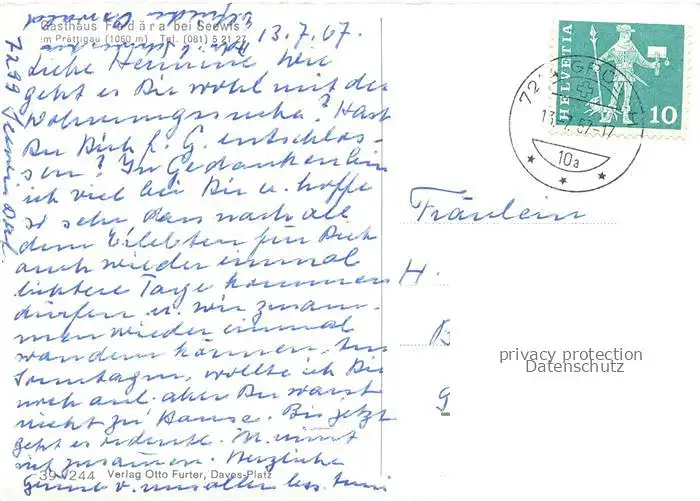 Gasthaus F d ä r a bei Seewis
im Prättigau (1060 m) Tel. (081) 5 21 27
13.7.67.
Liebe Hermine Wie
geht es Dir wohl mit der
Wohnungssuche? Hast
Du Dich f. G. entschlos-
sen? In Gedanken bin
ich viel bei Dir u. hoffe
so sehr dass nach all
dem Erlebten für Dich
auch wieder einmal
lichtere Tage kommen
dürfen u. wir zusam-
men wieder einmal
wandern können. Am
Sonntag wollte ich Dir
noch auf. aber Du warst
nicht zu Hause. Bis jetzt
geht es ordentl. M. nimmt
sich zusammen. Herzliche
Grüsse v. uns allen bes.
39 244 Verlag Otto Furter, Davos-Platz
7299 Seewis Dorf
HELVETIA
10
72 GRÜ
13. 7. 67-17
10a
Fräulein
H.
B
G
privacy protection
Datenschutz